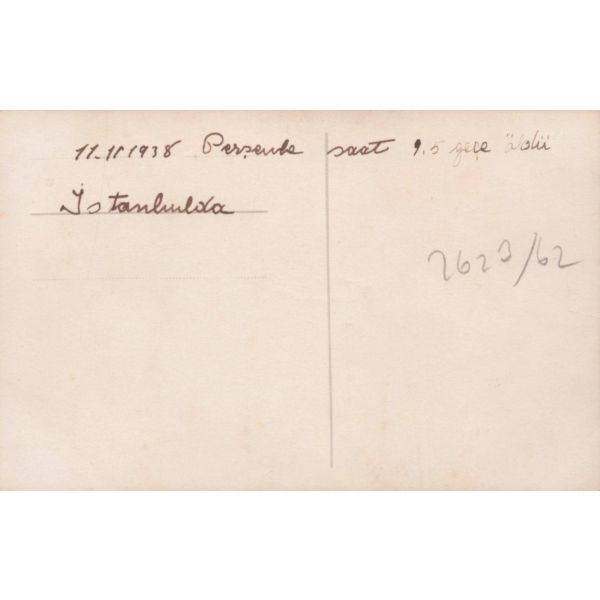 11-11 1938 Perşenbe saat 9.5 geçe öldü
İstanbulda
2623/62